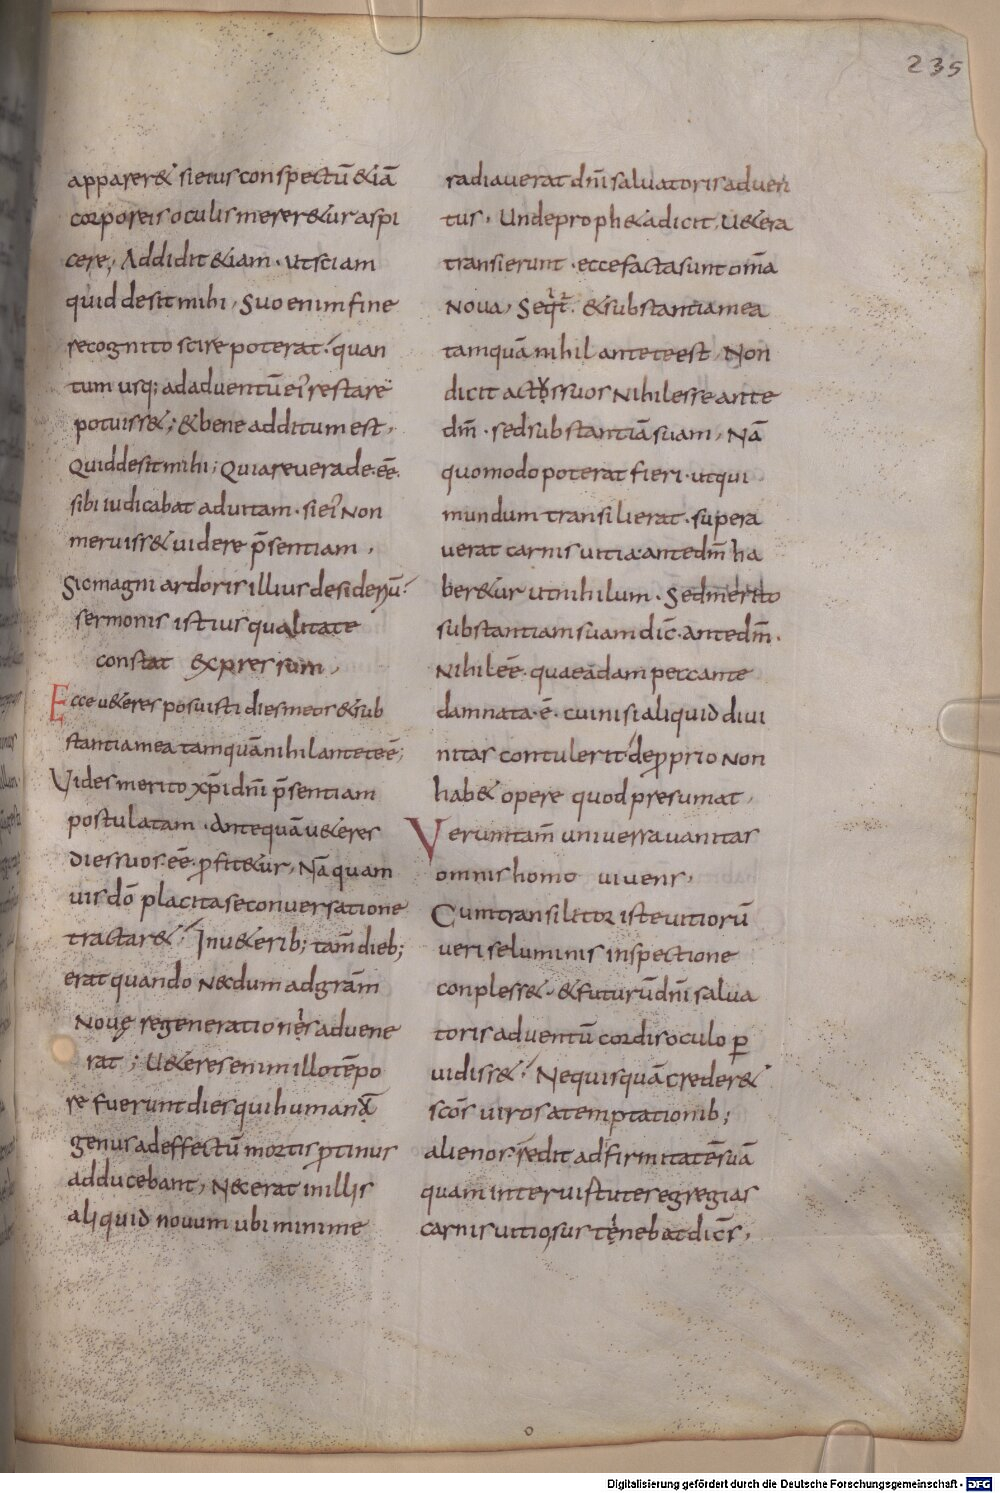 235
apparer& si eius conspectū &iā
corporeis oculis merer&ur aspi
cere, Addidit &iam · ut sciam
quid desit mihi, Suo enim fine
recognito scire poterat · quan
tum usq; ad aduentū ei' restare
potuiss&; & bene additum est,
Quid desit mihi; Quia reuera de·eē·
sibi iudicabat ad uitam · si ei' Non
meruiss& uidere p̄sentiam,
Sic magni ardoris illius desideriū
sermonis istius qualitate
constat expressum,
Ecce u&eres posuisti dies meos & sub
stantia mea tamquā nihil ante te ē;
Vides merito xp̄i dn̄i p̄sentiam
postulatam · Antequā u&eres
dies suos eē · ꝓfit&ur, Nā quam
uis dō placita se conuersatione
tractar& · In u&erib; tam̄ dieb;
erat quando necdum ad grām
Nouę regenerationes aduene
rat; U&eres enim illo tēpo
re fuerunt dies qui humanū
genus ad effectū mortis ꝑtinus
adducebant, Nec erat in illis
aliquid nouum ubi minime
radiauerat dn̄i saluatoris aduen
tus, Unde proph&a dicit, U&era
transierunt · ecce facta sunt om̄a
Noua, Seqt̄r · & substantia mea
tamquā nihil ante te est, Non
dicit actus suos Nihil esse ante
dm̄ · sed substantiā suam, Nā
quomodo poterat fieri · ut qui
mundum transilierat · supera
uerat carnis uitia · ante dm̄ ha
ber&ur ut nihilum · Sed merito
substantiam suam dic̄ · ante dm̄ ·
Nihil eē · quae adam peccante
damnata · ē · cui nisi aliquid diui
nitas contulerit de ꝓprio Non
hab& opere quod presumat,
Veruntam̄ uniuersa uanitas
omnis homo uiuens,
Cum transilitor iste uitiorū
ueri se luminis inspectione
conpless& · & futurū dn̄i salua
toris aduentū cordis oculo ꝑ
uidiss& · Ne quisquā creder&
scōs uiros a temptationib;
alienos redit ad firmitatē suā
quam inter uirtutes egregias
carnis uitiosus tenebat dicēs,
Digitalisierung gefördert durch die Deutsche Forschungsgemeinschaft - DFG